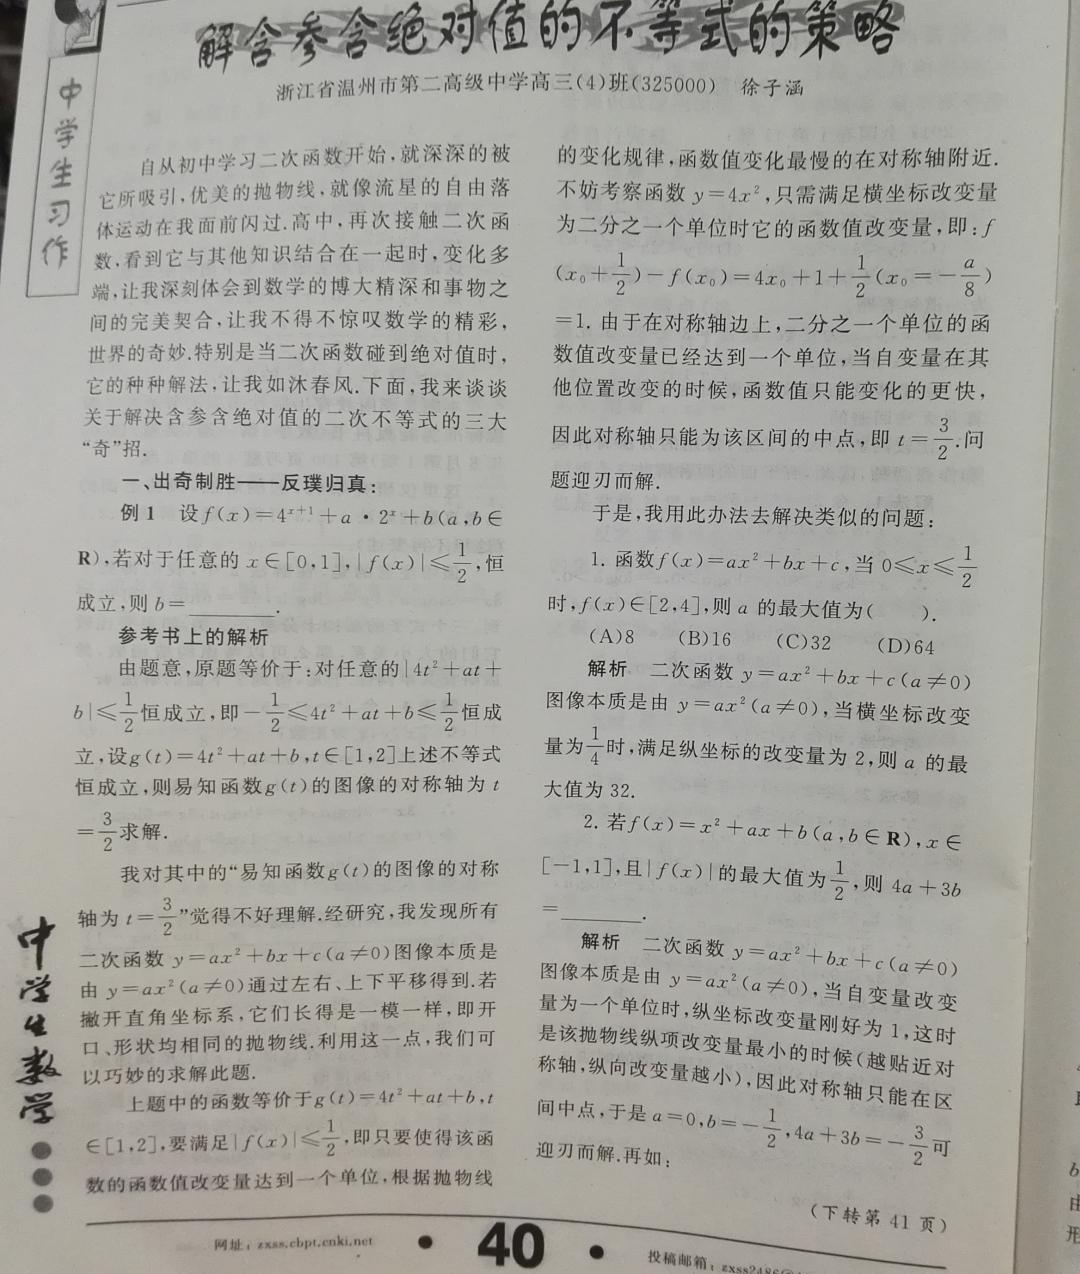 解含参含绝对值的不等式的策略
浙江省温州市第二高级中学高三(4)班(325000) 徐子涵
中学生习作
自从初中学习二次函数开始,就深深的被
它所吸引,优美的抛物线,就像流星的自由落
体运动在我面前闪过.高中,再次接触二次函
数,看到它与其他知识结合在一起时,变化多
端,让我深刻体会到数学的博大精深和事物之
间的完美契合,让我不得不惊叹数学的精彩,
世界的奇妙.特别是当二次函数碰到绝对值时,
它的种种解法,让我如沐春风.下面,我来谈谈
关于解决含参含绝对值的二次不等式的三大
“奇”招.
一、出奇制胜——反璞归真:
例1 设f(x)=4^{x+1}+a·2^x+b(a,b∈
R),若对于任意的x∈[0,1],|f(x)|≤1/2,恒
成立,则b=______.
参考书上的解析
由题意,原题等价于:对任意的|4t²+at+
b|≤1/2恒成立,即-1/2≤4t²+at+b≤1/2恒成
立,设g(t)=4t²+at+b,t∈[1,2]上述不等式
恒成立,则易知函数g(t)的图像的对称轴为t
=3/2求解.
我对其中的“易知函数g(t)的图像的对称
轴为t=3/2”觉得不好理解.经研究,我发现所有
二次函数y=ax²+bx+c(a≠0)图像本质是
由y=ax²(a≠0)通过左右、上下平移得到.若
撇开直角坐标系,它们长得是一模一样,即开
口、形状均相同的抛物线.利用这一点,我们可
以巧妙的求解此题.
上题中的函数等价于g(t)=4t²+at+b,t
∈[1,2],要满足|f(x)|≤1/2,即只要使得该函
数的函数值改变量达到一个单位,根据抛物线
的变化规律,函数值变化最慢的在对称轴附近.
不妨考察函数y=4x²,只需满足横坐标改变量
为二分之一个单位时它的函数值改变量,即:f
(x₀+1/2)-f(x₀)=4x₀+1+1/2(x₀=-a/8)
=1.由于在对称轴边上,二分之一个单位的函
数值改变量已经达到一个单位,当自变量在其
他位置改变的时候,函数值只能变化的更快,
因此对称轴只能为该区间的中点,即t=3/2.问
题迎刃而解.
于是,我用此办法去解决类似的问题:
1.函数f(x)=ax²+bx+c,当0≤x≤1/2
时,f(x)∈[2,4],则a的最大值为( ).
(A)8 (B)16 (C)32 (D)64
解析 二次函数y=ax²+bx+c(a≠0)
图像本质是由y=ax²(a≠0),当横坐标改变
量为1/4时,满足纵坐标的改变量为2,则a的最
大值为32.
2.若f(x)=x²+ax+b(a,b∈R),x∈
[-1,1],且|f(x)|的最大值为1/2,则4a+3b
=______.
解析 二次函数y=ax²+bx+c(a≠0)
图像本质是由y=ax²(a≠0),当自变量改变
量为一个单位时,纵坐标改变量刚好为1,这时
是该抛物线纵项改变量最小的时候(越贴近对
称轴,纵向改变量越小),因此对称轴只能在区
间中点,于是a=0,b=-1/2,4a+3b=-3/2可
迎刃而解.再如:
(下转第41页)
中学生数学
网址:zxss.cbpt.cnki.net
40
投稿邮箱:zxss2486@